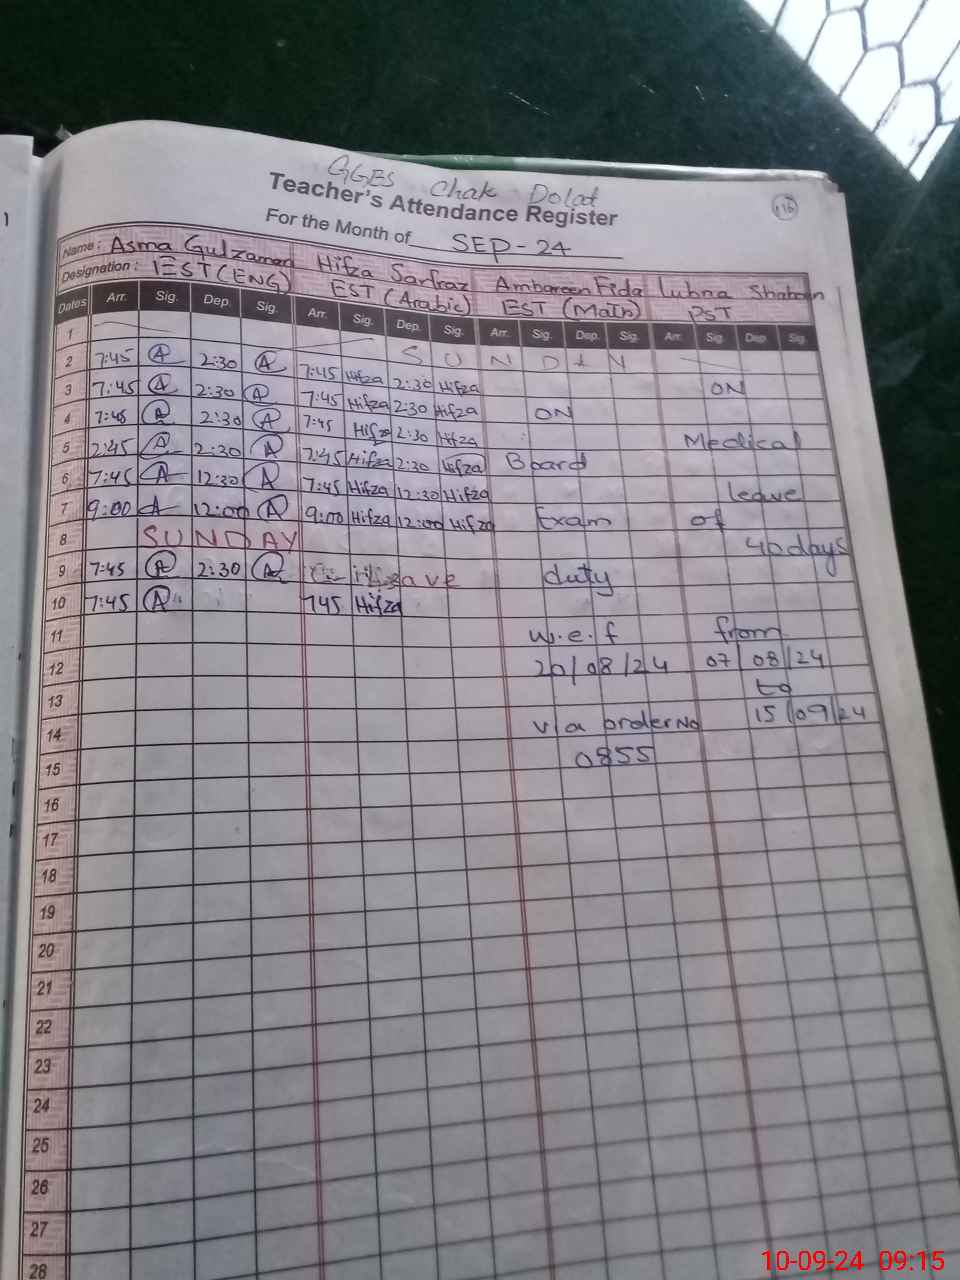 GGES Chak Dolat
Teacher's Attendance Register
For the Month of SEP-24
Name: Asma Gulzaman Hifza Sarfraz Ambareen Fida Lubna Shaheen
Designation: EST (ENG) EST (Arabic) EST (Math) PST
Dates Arr. Sig. Dep. Sig. Arr. Sig. Dep. Sig. Arr. Sig. Dep. Sig. Arr. Sig. Dep. Sig.
1 S U N D A Y
2 7:45 A 2:30 A 7:45 Hifza 2:30 Hifza ON
3 7:45 A 2:30 A 7:45 Hifza 2:30 Hifza ON
4 7:45 A 2:30 A 7:45 Hifza 2:30 Hifza Medical
5 2:45 A 2:30 A 7:45 Hifza 2:30 Hifza Board
6 7:45 A 12:30 A 7:45 Hifza 12:30 Hifza leave
7 9:00 A 12:00 A 9:00 Hifza 12:00 Hifza Exam of
8 SUNDAY 40 days
9 7:45 A 2:30 A duty
10 7:45 A 745 Hifza
11 w.e.f from
12 20/08/24 07/08/24
13 to
14 via order No 15/09/24
15 0855
16
17
18
19
20
21
22
23
24
25
26
27
28
10-09-24 09:15